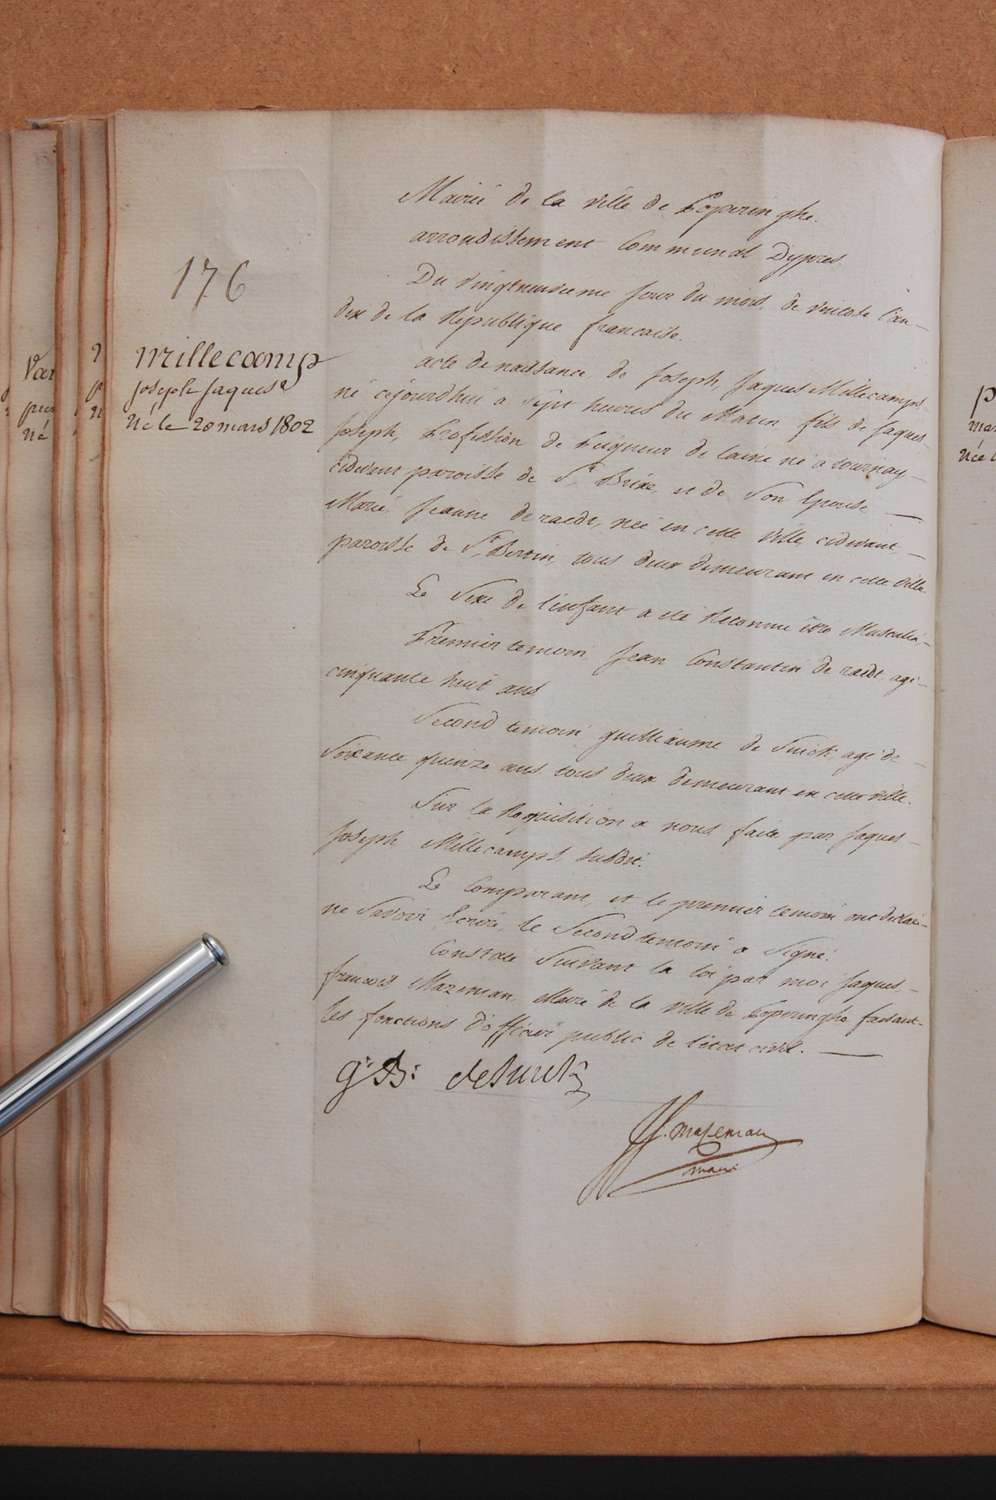 Mairie de la ville de Poperinghe.
arrondissement Communal Dypres
Du vingtneuvieme jour du mois de ventose l'an
dix de la Republique francaise.
176
Millecamp
joseph jaques
Né le 20 mars 1802
acte de naissance de Joseph Jaques Millecamps
né cejourdhui a sept heures du Matin fils de Jaques
Joseph, Profession de Peigneur de laine né a tournay
cidevant paroisse de St. Brixe, et de Son Epouse
Marie Jeanne deraedt, née en cette ville cidevant
paroisse de St. Bertin, tous deux demeurant en cette ville
Le Sexe de l'enfant a eté Reconnu être Masculin
Premier temoin Jean Constantin de raedt agé
cinquante huit ans
Second temoin guilleaume de Surck agé de
Soixante quinze ans tous deux demeurant en cette ville.
Sur la Requisition a nous faite par Jaques
Joseph Millecamps susdit.
Le Comparant, et le premier temoin ont declaré
ne Savoir Ecrire, le Second temoin a Signé.
Constaté Suivant la loi par moi Jaques
francois Mazeman Maire de la ville de Poperinghe faisant
les fonctions d'officier public de l'état civil.
G: B: de Surck
J. F. Mazeman
maire
Van
né
Née